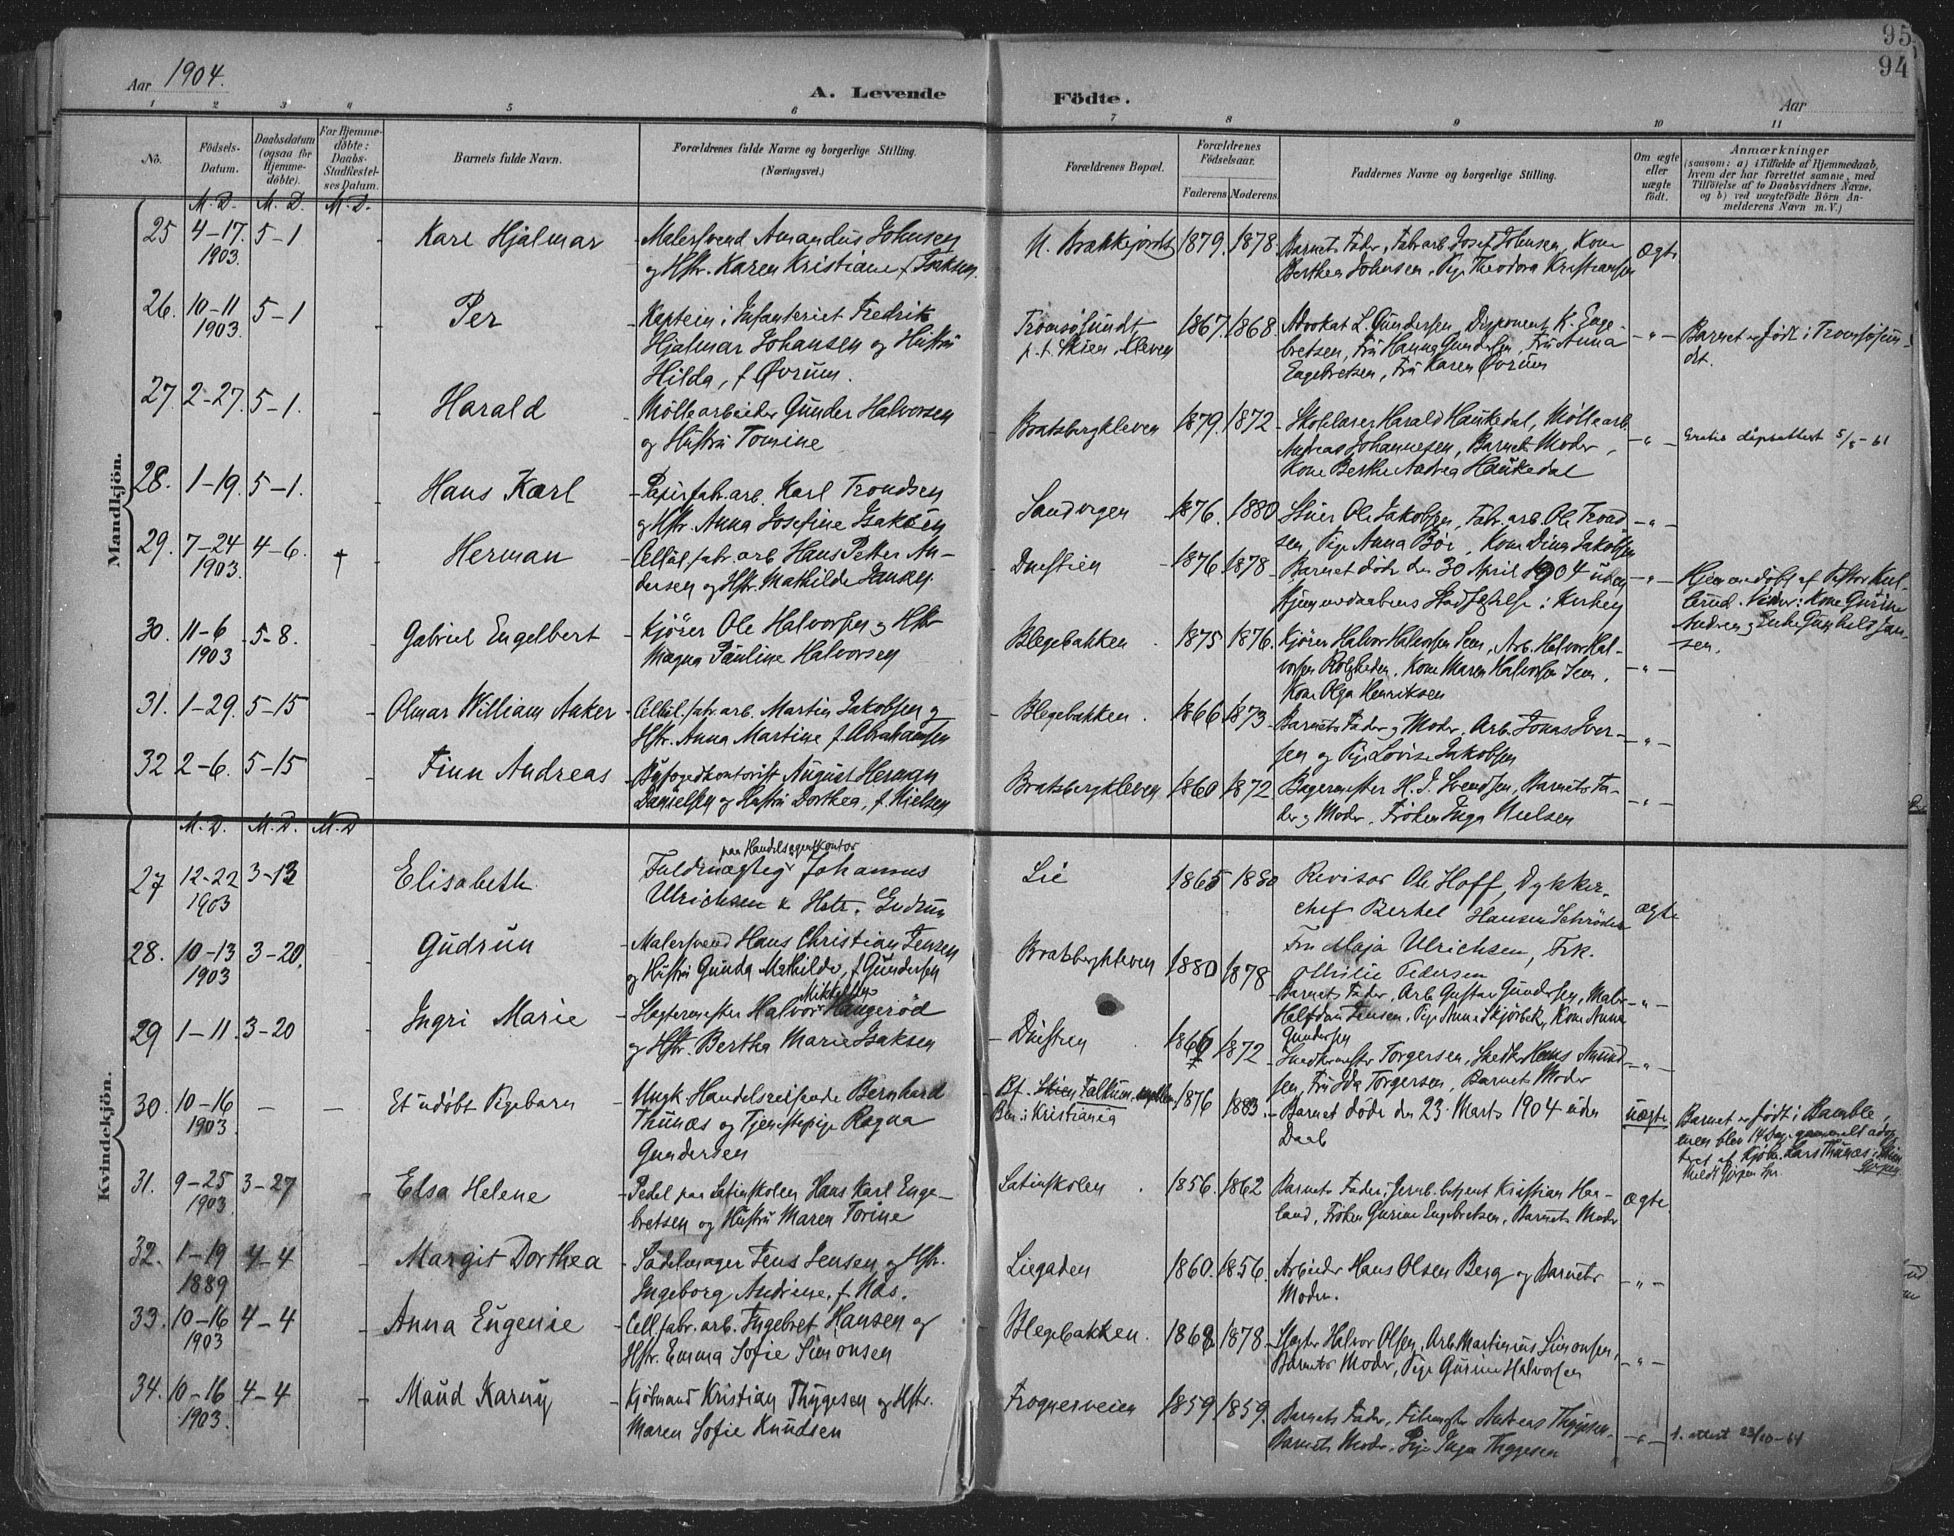 95
94
Aar 1904.
A. Levende
Födte.
Aar
1 2 3 4 5 6 7 8 9 10 11
No.
Födsels-
Datum.
Daabsdatum
(ogsaa for
Hjemme-
døbte).
For Hjemme-
døbte:
Daabs-
Stadfæstel-
ses Datum.
Barnets fulde Navn.
Forældrenes fulde Navne og borgerlige Stilling.
(Næringsvei.)
Forældrenes Bopæl.
Forældrenes
Födselsaar.
Faderens. Moderens.
Faddernes Navne og borgerlige Stilling.
Om ægte
eller
uægte
født.
Anmærkninger
(saasom: a) i Tilfælde af Hjemmedaab,
hvem der har forrettet samme, med
Tilföielse af to Daabsvidners Navne,
og b) ved uægtefødte Börn An-
melderens Navn m. V.)
M. D. M. D. M. D.
Mandkjön.
25 4-17. 1903. 5-1 Kare Hjalmar
Malersvend Amandus Johnsen
og Hstr. Karen Kristiane f. Isaksen.
N. Brekkejordet 1879. 1878.
Barnets Fader, Fabr.arb. Josef Johnsen, Kone
Berthea Johnsen, Pige Theodora Kristiansen
Ægte
26. 10-11 1903. 5-1 Per
Kaptein i Infanteriet Fredrik
Hjalmar Johansen og Hustru
Hilda, f. Øvrum.
Tromsøsundt,
p.t. Skien, Kleven
1867. 1868
Advokat L. Gundersen, Disponent K. Enge-
bretsen, Fru Hanna Gundersen, Fru Anna
Engebretsen, Fru Karen Øvrum
-"-
Barnet er født i Tromsøsun-
det.
27. 2-27. 5-1. Harald
Møllearbeider Gunder Halvorsen
og Hustru Tomine
Bratsbergkleven 1879. 1872
Skofabr. Harald Haukedal, Møllearb.
Andreas Johannesen, Barnets Moder,
Kone Berthe Andrea Haukedal
-"-
Gratis dåpsattest 5/5-61
28. 1-19. 5-1. Hans Karl
Papirfabr.arb. Karl Trondsen
og Hstr. Anna Josefine Isaksen
Sandvegen 1876. 1880
Stuer Ole Jakobsen, Fabr.arb. Ole Trond-
sen, Pige Anna Bøe, Kone Dina Jakobsen
-"-
29. 7-24 1903. 4-6. † Herman
Cellul.fabr.arb. Hans Petter An-
dersen og Hstr. Mathilde Jansen.
Duestien 1876 1878
Barnet døde den 30 April 1904 uden
Hjemmedaabens Stadfæstelse i Kirken
-"-
Hjemmedøbt af Pastor Kul-
lerud. Vidner: Kone Gurine
Andrea og Enke Gunhild Jan-
sen.
30. 11-6 1903 5-8. Gabriel Engelbert
Kjører Ole Halvorsen og Hstr.
Magna Pauline Halvorsen
Blegebakken 1875 1876.
Kjører Halvor Halvorsen Sem, Arb. Halvor Hal-
vorsen Roligheden, Kone Maren Halvorsen Sem,
Kone Olga Henriksen
-"-
31. 1-29. 5-15 Olmar William Anker
Cellul.fabr.arb. Martin Jakobsen og
Hstr. Anna Martine f. Abrahamsen
Blegebakken. 1866 1873
Barnets Fader og Moder, Arb. Jonas Iver-
sen og Pige Lovise Jakobsen
-"-
32 2-6. 5-15 Finn Andreas
Byfogedkontorist August Herman
Danielsen og Hustru Dorthea, f. Nielsen
Bratsbergkleven 1860 1872
Bagermester H. J. Svendsen, Barnets Fa-
der og Moder. Frøken Inga Nielsen
-"-
M. D. M. D. M. D
Kvindekjön.
27 12-22 1903 3-13 Elisabeth
paa Handelsagentkontor
Fuldmægtig Johannes
Ulrichsen & Hstr. Gudrun
Lie 1865 1880
Revisor Ole Hoff, Dykker-
chef Berthel Hansen Schrøder
Fru Maja Ulrichsen, Frk.
Othilie Pedersen
ægte
28. 10-13 1903 3-20. Gudrun
Malersvend Hans Christian Jensen
og Hustru Gunda Mathilde, f. Gundersen
Bratsbergkleven 1880 1878
Barnets Fader, Arb. Gustav Gundersen, Maler
Halfdan Jensen, Pige Anna Skjørbek, Kone Anna
Gundersen
-"-
29 1-11. 3-20 Ingri Marie
Mikkelsen
Slagtermester Halvor Haugerød
og Hstr. Bertha Marie Isaksen
Duestien 1866 1872
Snedkermester Torgersen, Snedker Hans Amund-
sen, Fru Ida Torgersen, Barnets Moder
-"-
30. 10-16 1903. - - Et udøbt Pigebarn
Ungk. Handelsreisende Bernhard
Thunæs og Tjenestepige Ragna
Gundersen
Bf. Skien Falkum
Bm. i Kristiania
1876 1883
Barnet døde den 23 Marts 1904 uden
Daab
uægte
Barnet er født i Bamble,
men blev 14 Dage gammelt adop-
teret af Kjøbm. Lars Thunæs i Skien
Meldt Gjerpen Spr. Gjerpen
31. 9-25 1903. 3-27 Elsa Helene
Pedel paa Latinskolen Hans Karl Enge-
bretsen og Hustru Maren Torine
Latinskolen 1856. 1862
Barnets Fader, Jernb.betjent Kristian Han-
land, Frøken Gurine Engebretsen, Barnets Moder
Ægte
32. 1-19 1889 4-4 Margit Dorthea
Sadelmager Jens Jensen og Hstr.
Ingeborg Andrine, f. Næs.
Liegaden 1860. 1856.
Arbeider Hans Olsen Berg og Barnets
Moder.
-"-
33. 10-16 1903 4-4 Anna Eugenie
Cell.fabr.arb. Ingebret Hansen og
Hstr. Emma Sofie Simonsen
Blegebakken. 1868 1878
Slagter Halvor Olsen, Arb. Martinius Simonsen,
Barnets Moder, Pige Gurine Halvorsen
-"-
34. 10-16 1903. 4-4 Maud Karny
Kjøbmand Kristian Thygesen og Hstr.
Maren Sofie Knudsen
Frognerveien 1859 1859.
Barnets Fader, Andreas Thygesen,
Barnets Moder, Pige Inga Thygesen
-"-
1. attest 23/10-64